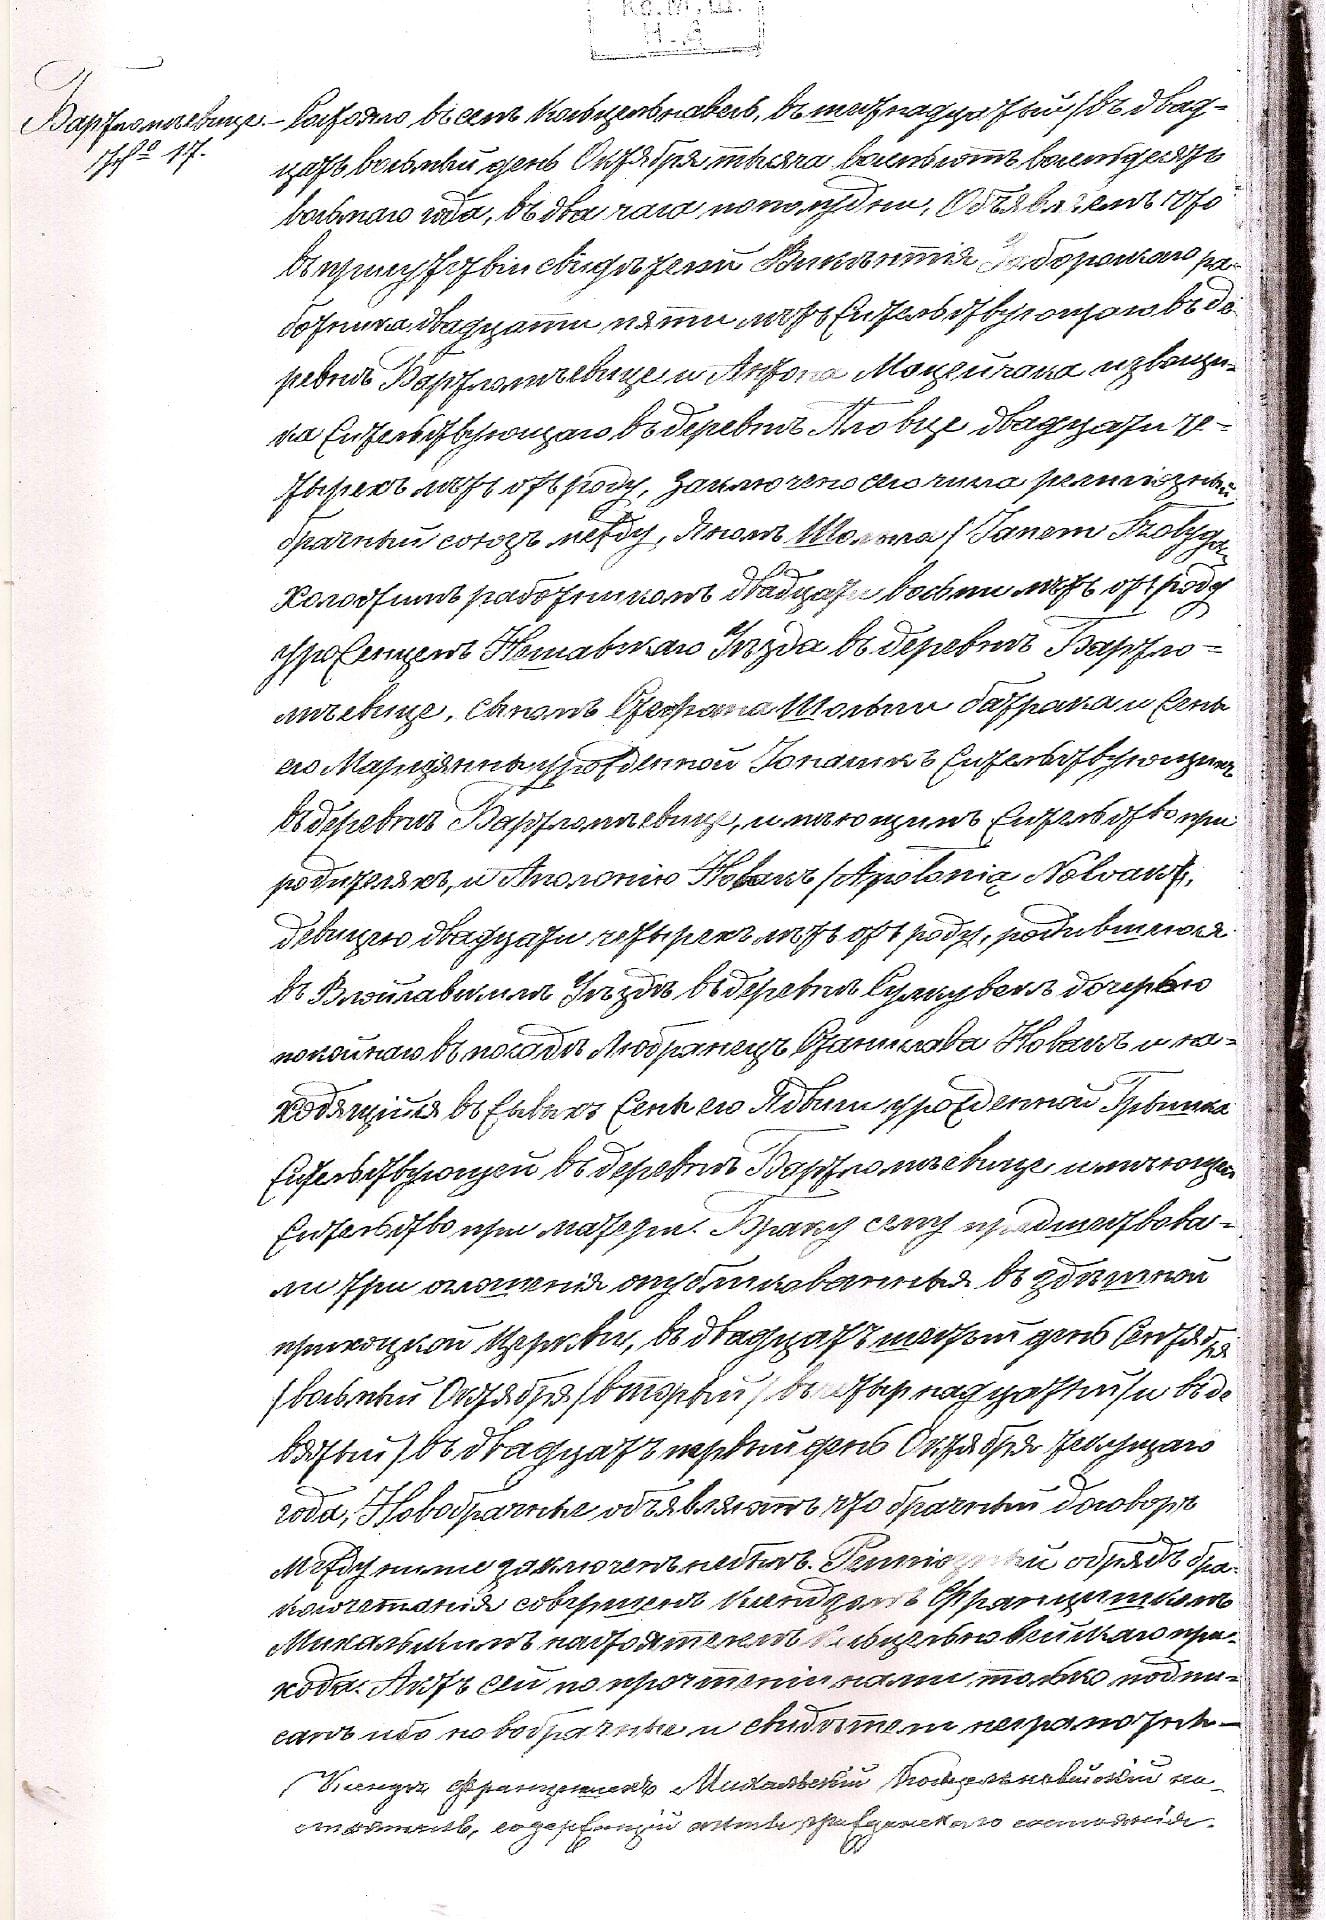 Ко.М.Ш.
Бартломѣевице.
№ 17.
Состояло въ семъ Косцельнавесь, въ шестнадцатый /въ двад-
цать восьмый день Октября тысяча восемьсотъ восемьдесятъ
восьмаго года, въ два часа пополудни. Объявляемъ что
въ присутствіи свидѣтелей Викентія Заборовскаго ра-
ботника двадцати пяти лѣтъ жительствующаго въ де-
ревнѣ Бартломѣевице и Антона Мацейчака извощи-
ка жительствующаго въ деревнѣ Пловце двадцати че-
тырехъ лѣтъ отъ роду, заключено сего числа религіозный
брачный союзъ между, Яномъ Шольма /Janem
холостымъ работникомъ двадцати восьми лѣтъ отъ роду
урожденцемъ Нешавскаго Уѣзда въ деревнѣ Бартло-
мѣевице, сыномъ Стефана Шольмы батрака и жены
его Марцянны урожденной Іонашкъ жительствующихъ
въ деревнѣ Бартломѣевице, имѣющимъ жительство при
родителяхъ, и Аполонію Новакъ /Apolonią Nowak/,
девицею двадцати четырехъ лѣтъ отъ роду, родившеюся
въ Влоцлавскомъ Уѣздѣ въ деревнѣ Сулкувекъ дочерью
покойнаго въ посадѣ Любранецъ Станислава Новакъ и на-
ходящійся въ живыхъ жены его Ядвиги урожденной
жительствующей въ деревнѣ Бартломѣевице имѣющей
жительство при матери. Браку сему предшествова-
ли три оглашенія опубликованныя въ здѣшной
приходской церкви, въ двадцать шестый день Сентября
/восьмый Октября/ вторый /въ четырнадцатый/ и въ де
вятый /въ двадцать первый день Октября текущаго
года, Новобрачные объявляютъ что брачный договоръ
между ними заключенъ небылъ. Религіозный обрядъ бра-
косочетанія совершенъ ксендзомъ Францишкомъ
Михальскимъ настоятелемъ Косцельновейскаго при-
хода. Актъ сей по прочтеніи нами только подпи-
санъ ибо новобрачные и свидѣтели неграмотны—
Ксендзъ Францишекъ Михальскій Косцельновейскій на-
стоятель, содержащій акты гражданского состоянія.